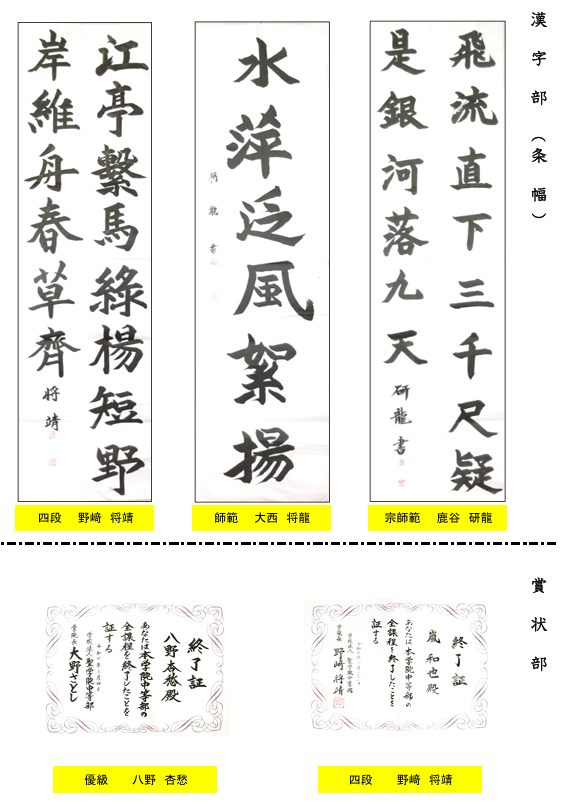 漢字部（条幅）
飛流直下三千尺疑
是銀河落九天
研龍書
宗師範 鹿谷 研龍
水萍泛風絮揚
龍書
師範 大西 将龍
江亭繋馬綠楊短野
岸維舟春草齊
将靖
四段 野﨑 将靖
賞状部
終了証
嵐和也殿
あなたは本学院中等部の
全課程を終了したことを
証する
学院長 野﨑将靖
四段 野﨑 将靖
終了証
八野杏愁殿
あなたは本学院中等部の
全課程を終了したことを
証する
学校法人聖学院中等部
学院長 大野さとし
優級 八野 杏愁